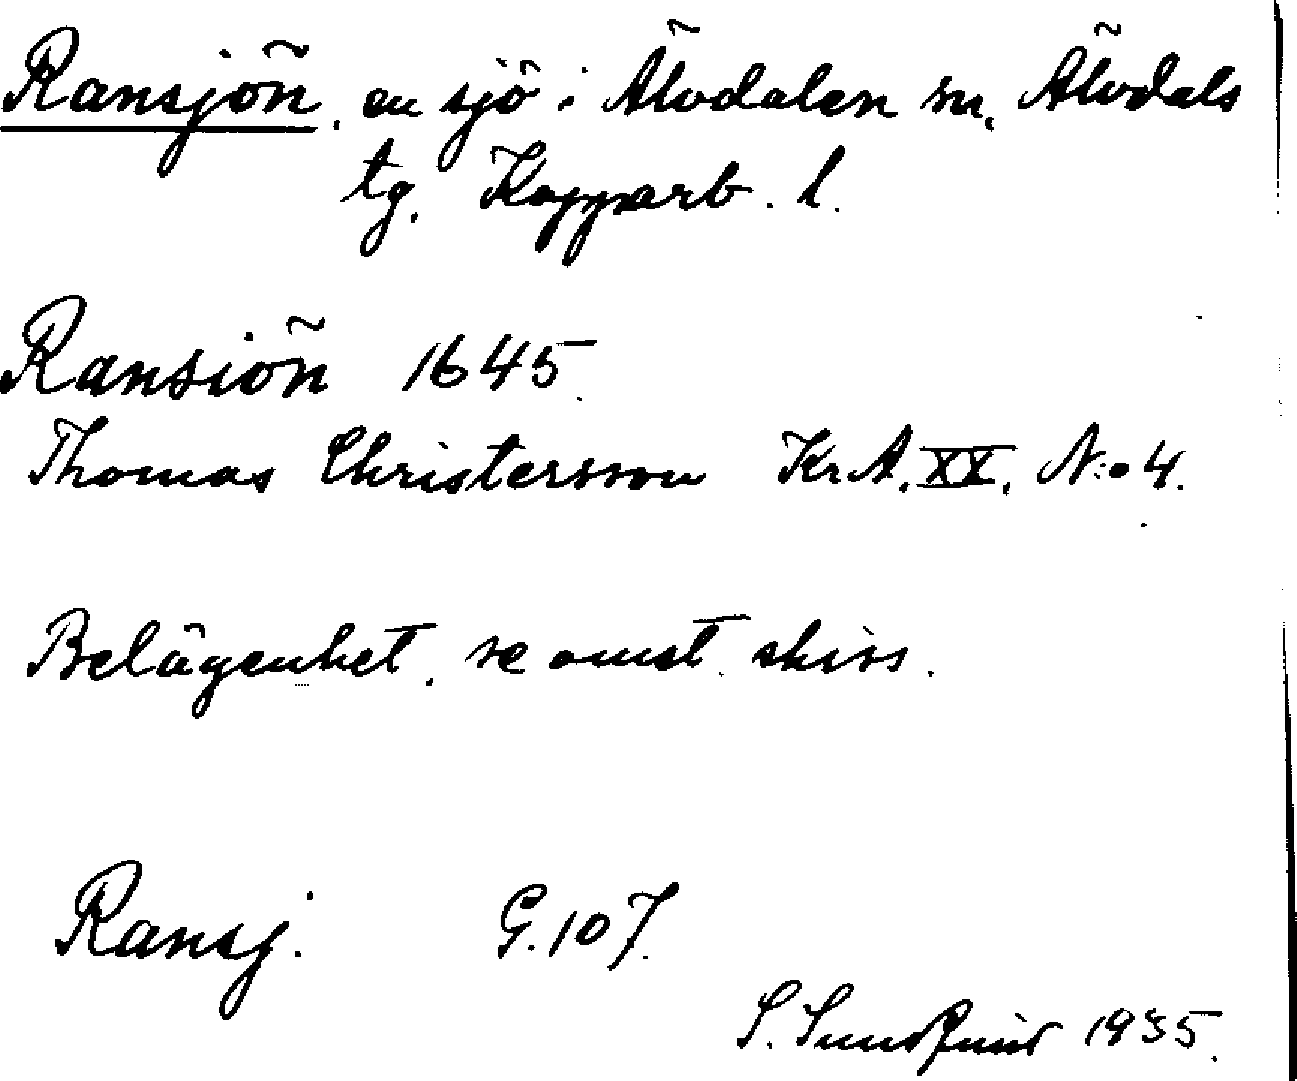 Ransjön, en sjö i Älvdalen sn, Älvdals
tg. Kopparb. l.
Ransiön 1645
Thomas Christersson Kr.A. XX. N:o 4.
Belägenhet. se omst. skiss.
Ransj. G.107.
S. 1935.